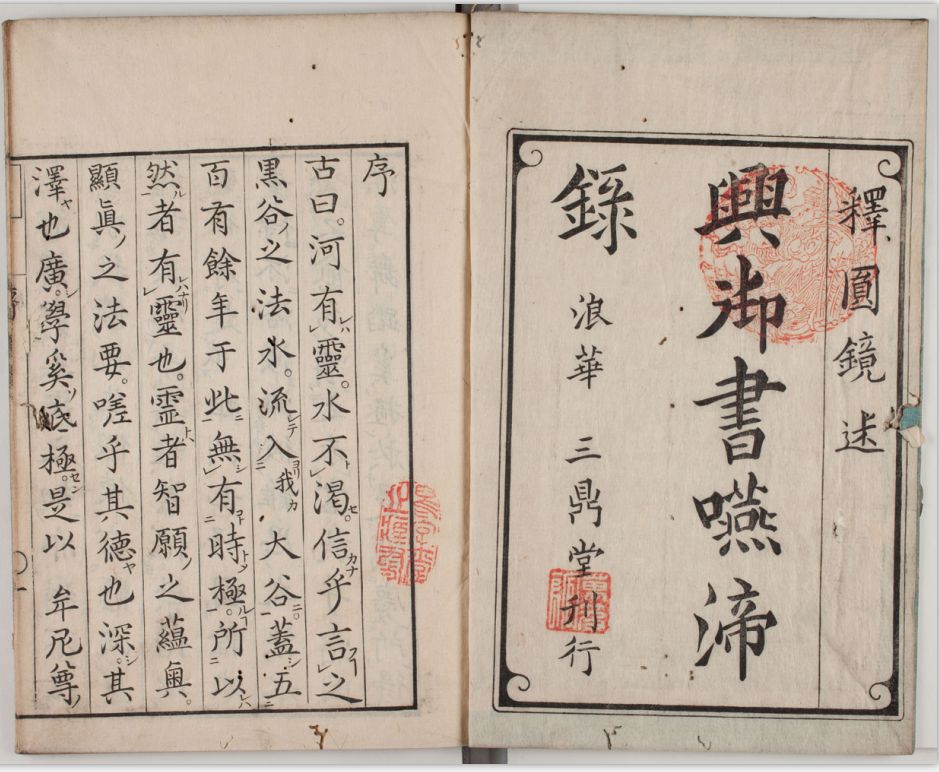 釋圓鏡述
興御書嚥渧
錄
浪華三鼎堂刊行
序
古曰。河有靈。水不渴。信乎言之
黒谷之法水。流入我大谷。蓋五
百有餘年于此無有時極。所以
然者有靈也。霊者智願之蘊奧。
顯眞之法要。嗟乎其德也深。其
澤也廣。學奚底極。是以 牟尼尊